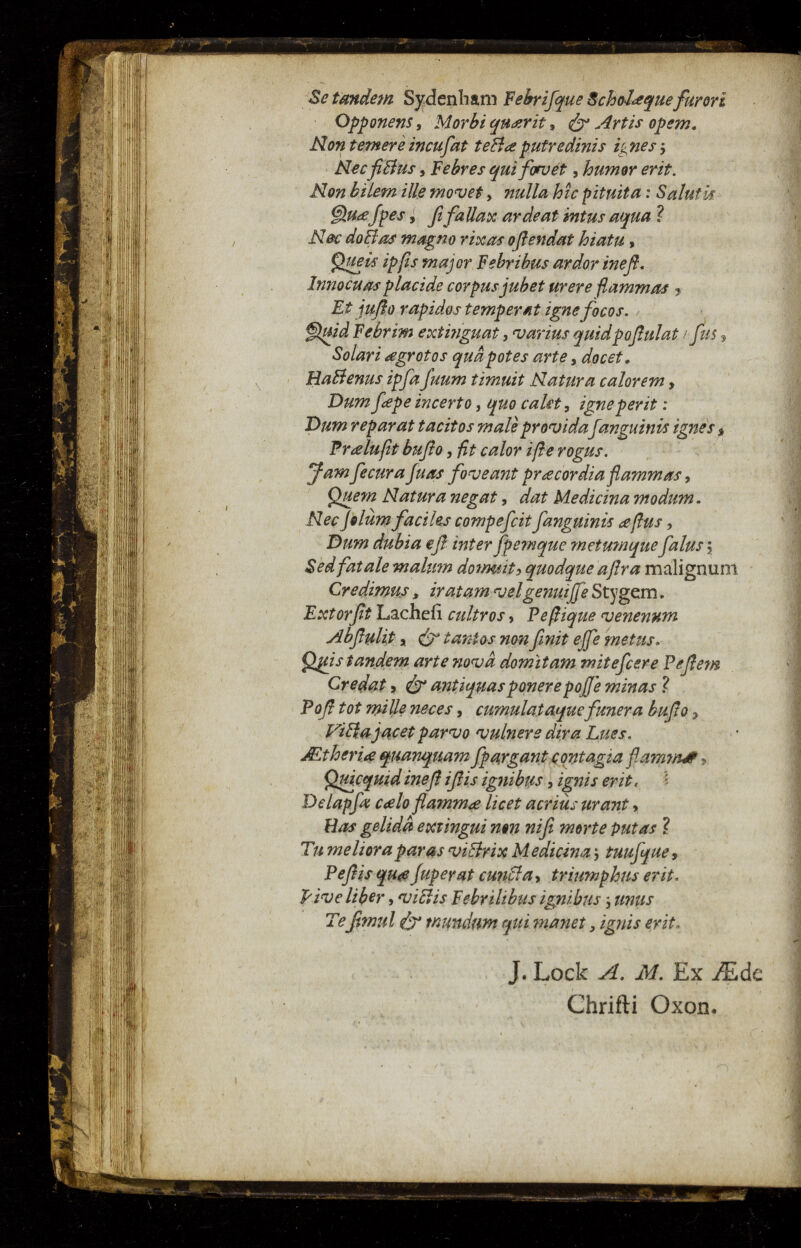 Se tandem Sydenham Febriſque Scholæque furori
Opponens, Morbi quærit, & Artis opem.
Non temere incuſat tectæ putredinis ignes;
Nec fictus, Febres qui fovet, humor erit.
Non bilem ille movet, nulla hîc pituita: Salutis
Quæ ſpes, ſi fallax ardeat intus aqua?
Nec doctas magno rixas oſtendat hiatu,
Queis ipſis major Febribus ardor ineſt.
Innocuas placide corpus jubet urere flammas,
Et juſto rapidos temperat igne focos.
Quid Febrim extinguat, varius quid poſtulat uſus,
Solari ægrotos quâ potes arte, docet.
Hactenus ipſa ſuum timuit Natura calorem,
Dum ſæpe incerto, quo calet, igne perit:
Dum reparat tacitos malè provida ſanguinis ignes,
Præluſit buſto, fit calor iſte rogus.
Jam ſecura ſuas foveant præcordia flammas,
Quem Natura negat, dat Medicina modum.
Nec ſolùm faciles compeſcit ſanguinis æſtus,
Dum dubia eſt inter ſpemque metumque ſalus;
Sed fatale malum domuit, quodque aſtra malignum
Credimus, iratam vel genuiſſe Stygem.
Extorſit Lacheſi cultros, Peſtique venenum
Abſtulit, & tantos non ſinit eſſe metus.
Quis tandem arte novâ domitam miteſcere Peſtem
Credat, & antiquas ponere poſſe minas?
Poſt tot mille neces, cumulataque funera buſto,
Victa jacet parvo vulnere dira Lues.
Ætheriæ quanquam ſpargant contagia flammæ,
Quicquid ineſt iſtis ignibus, ignis erit.
Delapſæ cælo flammæ licet acrius urant,
Has gelidâ extingui non niſi morte putas?
Tu meliora paras victrix Medicina; tuuſque,
Peſtis quæ ſuperat cuncta, triumphus erit.
Vive liber, victis Febrilibus ignibus; unus
Te ſimul & mundum qui manet, ignis erit.
J. Lock A. M. Ex Æde
Chriſti Oxon.